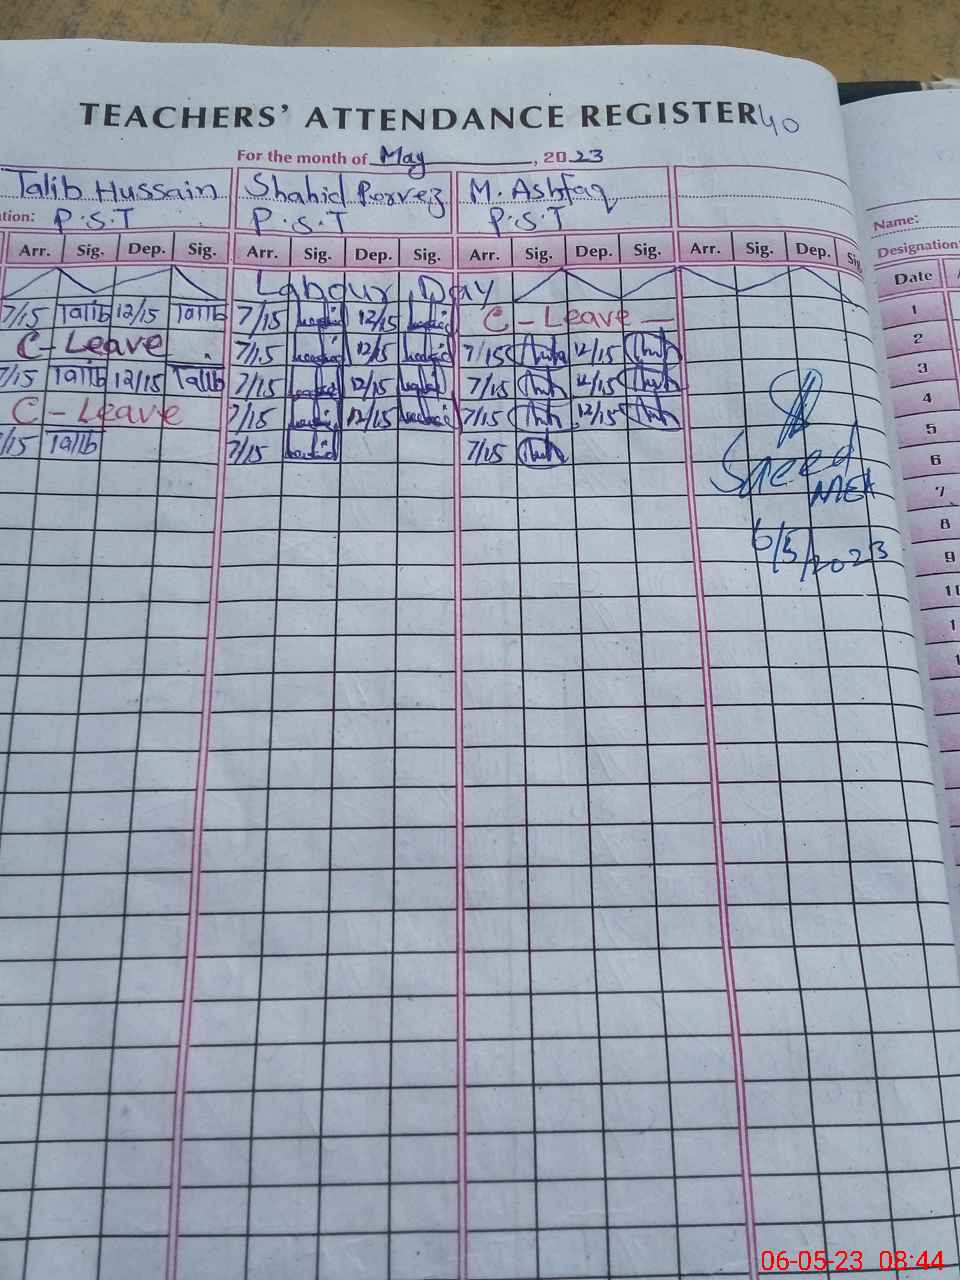 TEACHERS' ATTENDANCE REGISTER 40
For the month of May, 2023
Talib Hussain Shahid Pervez M. Ashfaq
Name:
tion: P.S.T P.S.T P.S.T
Designation:
Arr. Sig. Dep. Sig. Arr. Sig. Dep. Sig. Arr. Sig. Dep. Sig. Arr. Sig. Dep. Sig.
Date
Labour Day
7/15 Talib 12/15 Talib 7/15 12/15 C-Leave
1
C-Leave 7/15 12/15 7/15 12/15
2
7/15 Talib 12/15 Talib 7/15 12/15 7/15 12/15
3
C-Leave 7/15 12/15 7/15 12/15
4
7/15 Talib 7/15 7/15
5
Saeed
6
MEA
7
8
6/5/2023
9
10
1
1
06-05-23 08:44